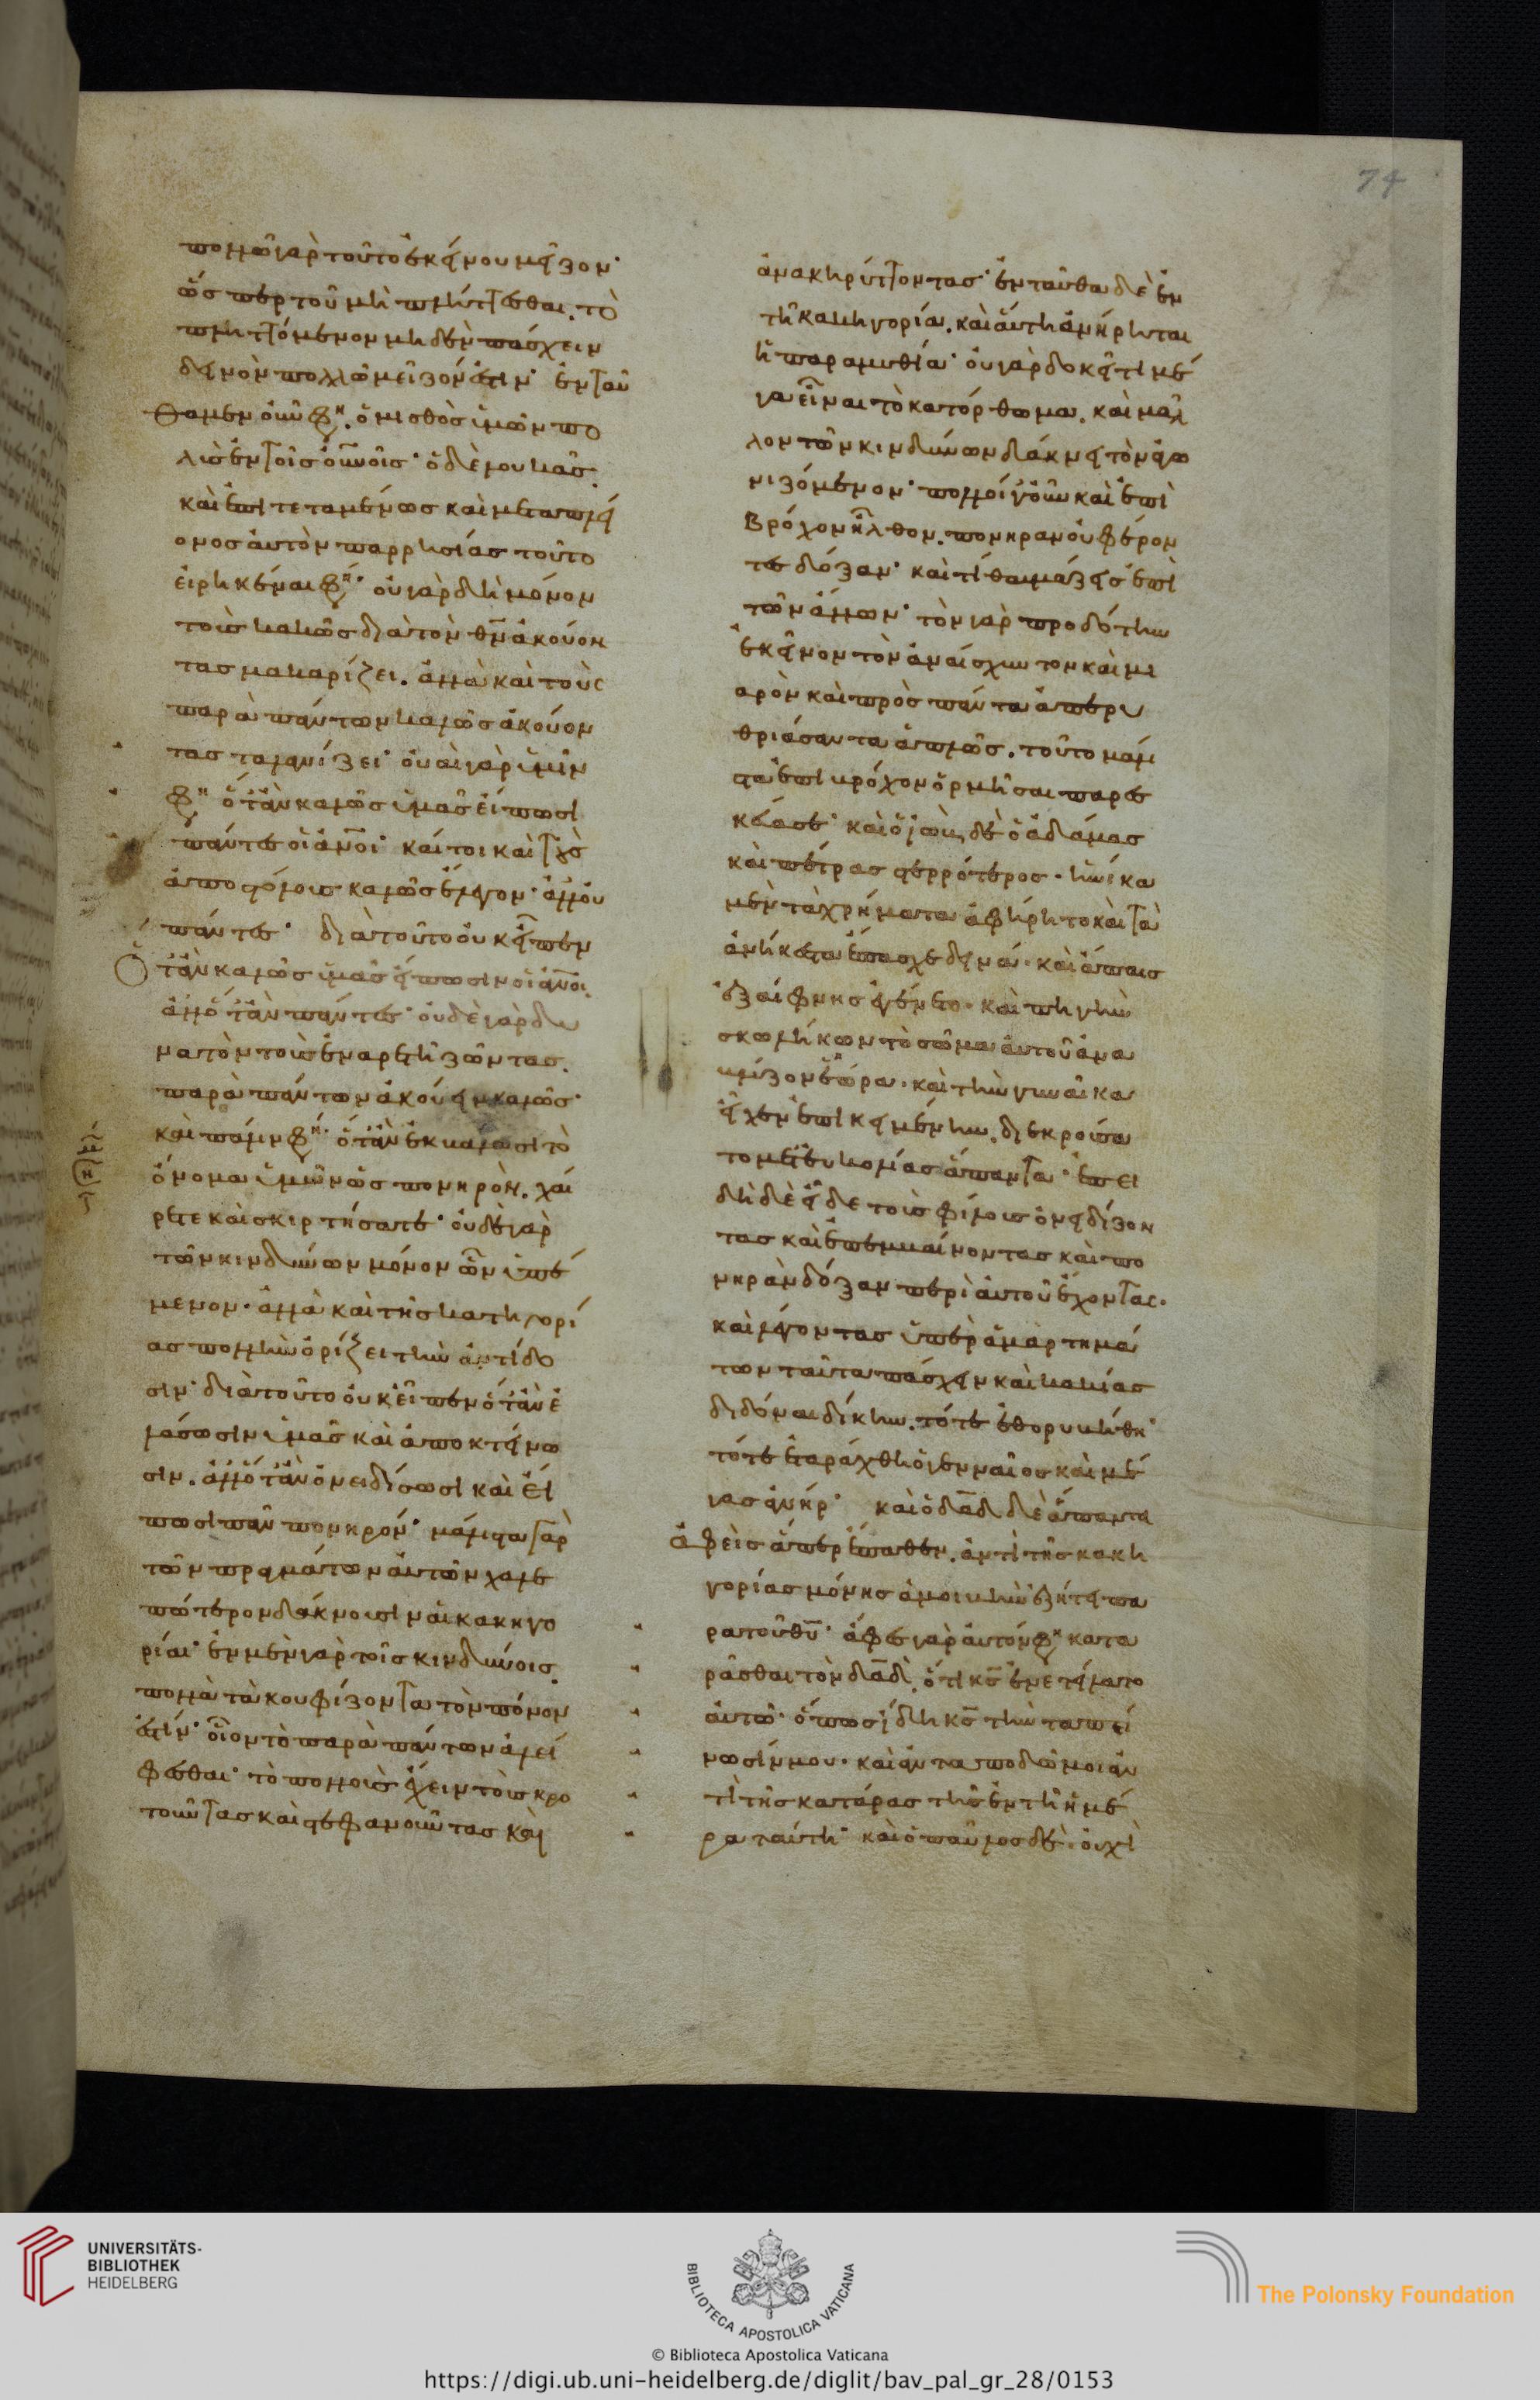 74
πολλῶ γὰρ τοῦτο ἐκείνου μεῖζον·
ὥσπερ τοῦ μὴ πλήττεσθαι, τὸ
πληττόμενον μηδὲν πάσχειν
δεινὸν πολλῶ μεῖζόν ἐστιν· ἐνταῦ
θα μὲν οὖν φη, ὁ μισθὸς ὑμῶν πο
λὺς ἐν τοῖς οὐνοῖς· ὁ δὲ λουκᾶς,
καὶ ἐπιτεταμένως καὶ μετὰ πλεί
ονος αὐτὸν παρρησίας τοῦτο
εἰρηκέναι φη· οὐ γὰρ δὴ μόνον
τοὺς κακῶς διὰ τὸν θν ἀκούον
τας μακαρίζει. ἀλλὰ καὶ τοὺς
παρὰ πάντων καλῶς ἀκούον
τας ταλανίζει· οὐαὶ γὰρ ὑμῖν
φη ὅταν καλῶς ὑμᾶς εἴπωσι
πάντες οἱ ἀνοι· καίτοι καὶ τοὺς
ἀποστόλους καλῶς ἔλεγον· ἀλλ' οὐ
πάντες· διὰ τοῦτο οὐκ εἶπεν
ὅταν καλῶς ὑμᾶς εἴπωσιν οἱ ἀνοι,
ἀλλ' ὅταν πάντες· οὐδὲ γὰρ δυ
νατὸν τοὺς ἐν ἀρετῆ ζῶντας,
παρὰ πάντων ἀκούειν καλῶς·
καὶ πάλιν φη· ὅταν ἐκβάλωσι τὸ
ὄνομα ὑμῶν ὡς πονηρὸν, χαί
ρετε καὶ σκιρτήσατε· οὐδὲ γὰρ
τῶν κινδύνων μόνον ὧν ὑπέ
μενον· ἀλλὰ καὶ τῆς κατηγορί
ας πολλὴν ὁρίζει τὴν ἀντίδο
σιν· διὰ τοῦτο οὐκ εἶπεν ὅταν ἐ
λάσωσιν ὑμᾶς καὶ ἀποκτείνω
σιν. ἀλλ' ὅταν ὀνειδίσωσι καὶ εἴ
πωσι πᾶν πονηρόν· μάλιστα γὰρ
τῶν πραγμάτων αὐτῶν χαλε
πώτερον δάκνουσιν αἱ κακηγο
ρίαι· ἐν μὲν γὰρ τοῖς κινδύνοις,
πολλὰ τὰ κουφίζοντα τὸν πόνον
ἐστίν· οἷον τὸ παρὰ πάντων ἀλεί
φεσθαι· τὸ πολλοὺς ἔχειν τοὺς κρο
τοῦντας καὶ στεφανοῦντας καὶ
ἀνακηρύττοντας· ἐνταῦθα δὲ ἐν
τῆ κακηγορία, καὶ αὕτη ἀνήρηται
ἡ παραμυθία· οὐ γὰρ δοκεῖ τι μέ
γα εἶναι τὸ κατόρθωμα, καὶ μᾶλ
λον τῶν κινδύνων δάκνει τὸν ἀγω
νιζόμενον· πολλοὶ γοῦν καὶ ἐπὶ
βρόχον ἦλθον, πονηρὰν οὐ φέρον
τες δόξαν· καὶ τί θαυμάζεις ἐπὶ
τῶν ἄλλων· τὸν γὰρ προδότην
ἐκεῖνον τὸν ἀναίσχυντον καὶ μι
αρὸν καὶ πρὸς πάντα ἀπερυ
θριάσαντα ἁπλῶς, τοῦτο μάλι
στα ἐπὶ βρόχον ὁρμῆσαι παρε
κάλεσε· καὶ ὁ ἰὼβ δὲ ὁ ἀδάμας
καὶ πέτρας στερρότερος· ἡνίκα
μὲν τὰ χρήματα ἀφήρητο καὶ τὰ
ἀνήκεστα ἔπασχε δεινά· καὶ ἄπαις
ἐξαίφνης ἐγένετο· καὶ πηγὴν
σκωλήκων τὸ σῶμα αὐτοῦ ἀνα
βλύζον ἑώρα· καὶ τὴν γυναῖκα
εἶχεν ἐπικειμένην, διεκρούσα
το μετ' εὐκολίας ἅπαντα· ἐπει
δὴ δὲ εἶδε τοὺς φίλους ὀνειδίζον
τας καὶ ἐπεμβαίνοντας καὶ πο
νηρὰν δόξαν περὶ αὐτοῦ ἔχοντας·
καὶ λέγοντας ὑπὲρ ἁμαρτημά
των ταῦτα πάσχειν καὶ κακίας
διδόναι δίκην, τότε ἐθορυβήθη·
τότε ἐταράχθη ὁ γενναῖος καὶ μέ
γας ἀνήρ· καὶ ὁ δαδ δὲ ἅπαντα
ἀφεὶς ἅπερ ἔπαθεν, ἀντὶ τῆς κακη
γορίας μόνης ἀμοιβὴν ἐζήτει πα
ρὰ τοῦ θυ· ἄφες γὰρ αὐτόν φη κατα
ρᾶσθαι τὸν δαδ, ὅτι κς ἐνετείλατο
αὐτῶ· ὅπως ἴδη κς τὴν ταπεί
νωσίν μου· καὶ ἀνταποδῶ μοι ἀν
τὶ τῆς κατάρας τῆς ἐν τῆ ἡμέ
ρα ταύτη· καὶ ὁ παῦλος δὲ οὐχὶ
UNIVERSITÄTS-
BIBLIOTHEK
HEIDELBERG
BIBLIOTECA APOSTOLICA VATICANA
The Polonsky Foundation
© Biblioteca Apostolica Vaticana
https://digi.ub.uni-heidelberg.de/diglit/bav_pal_gr_28/0153